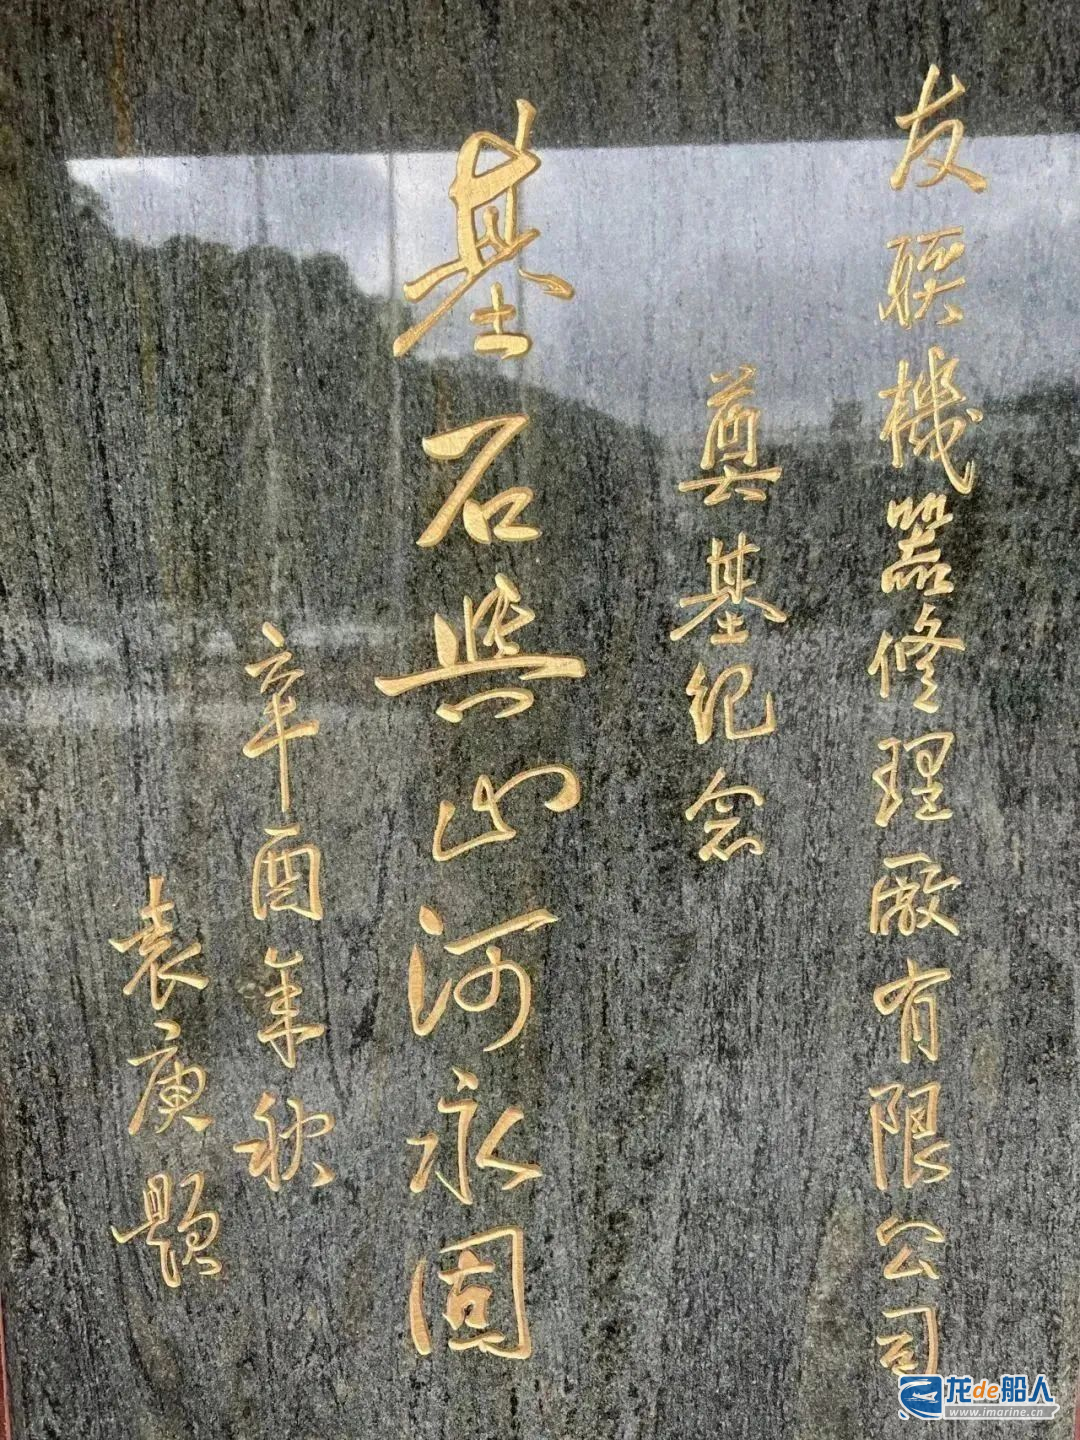 友聯機器修理廠有限公司
奠基纪念
基石與山河永固
辛酉年秋
袁庚題
龙de船人
www.imarine.cn